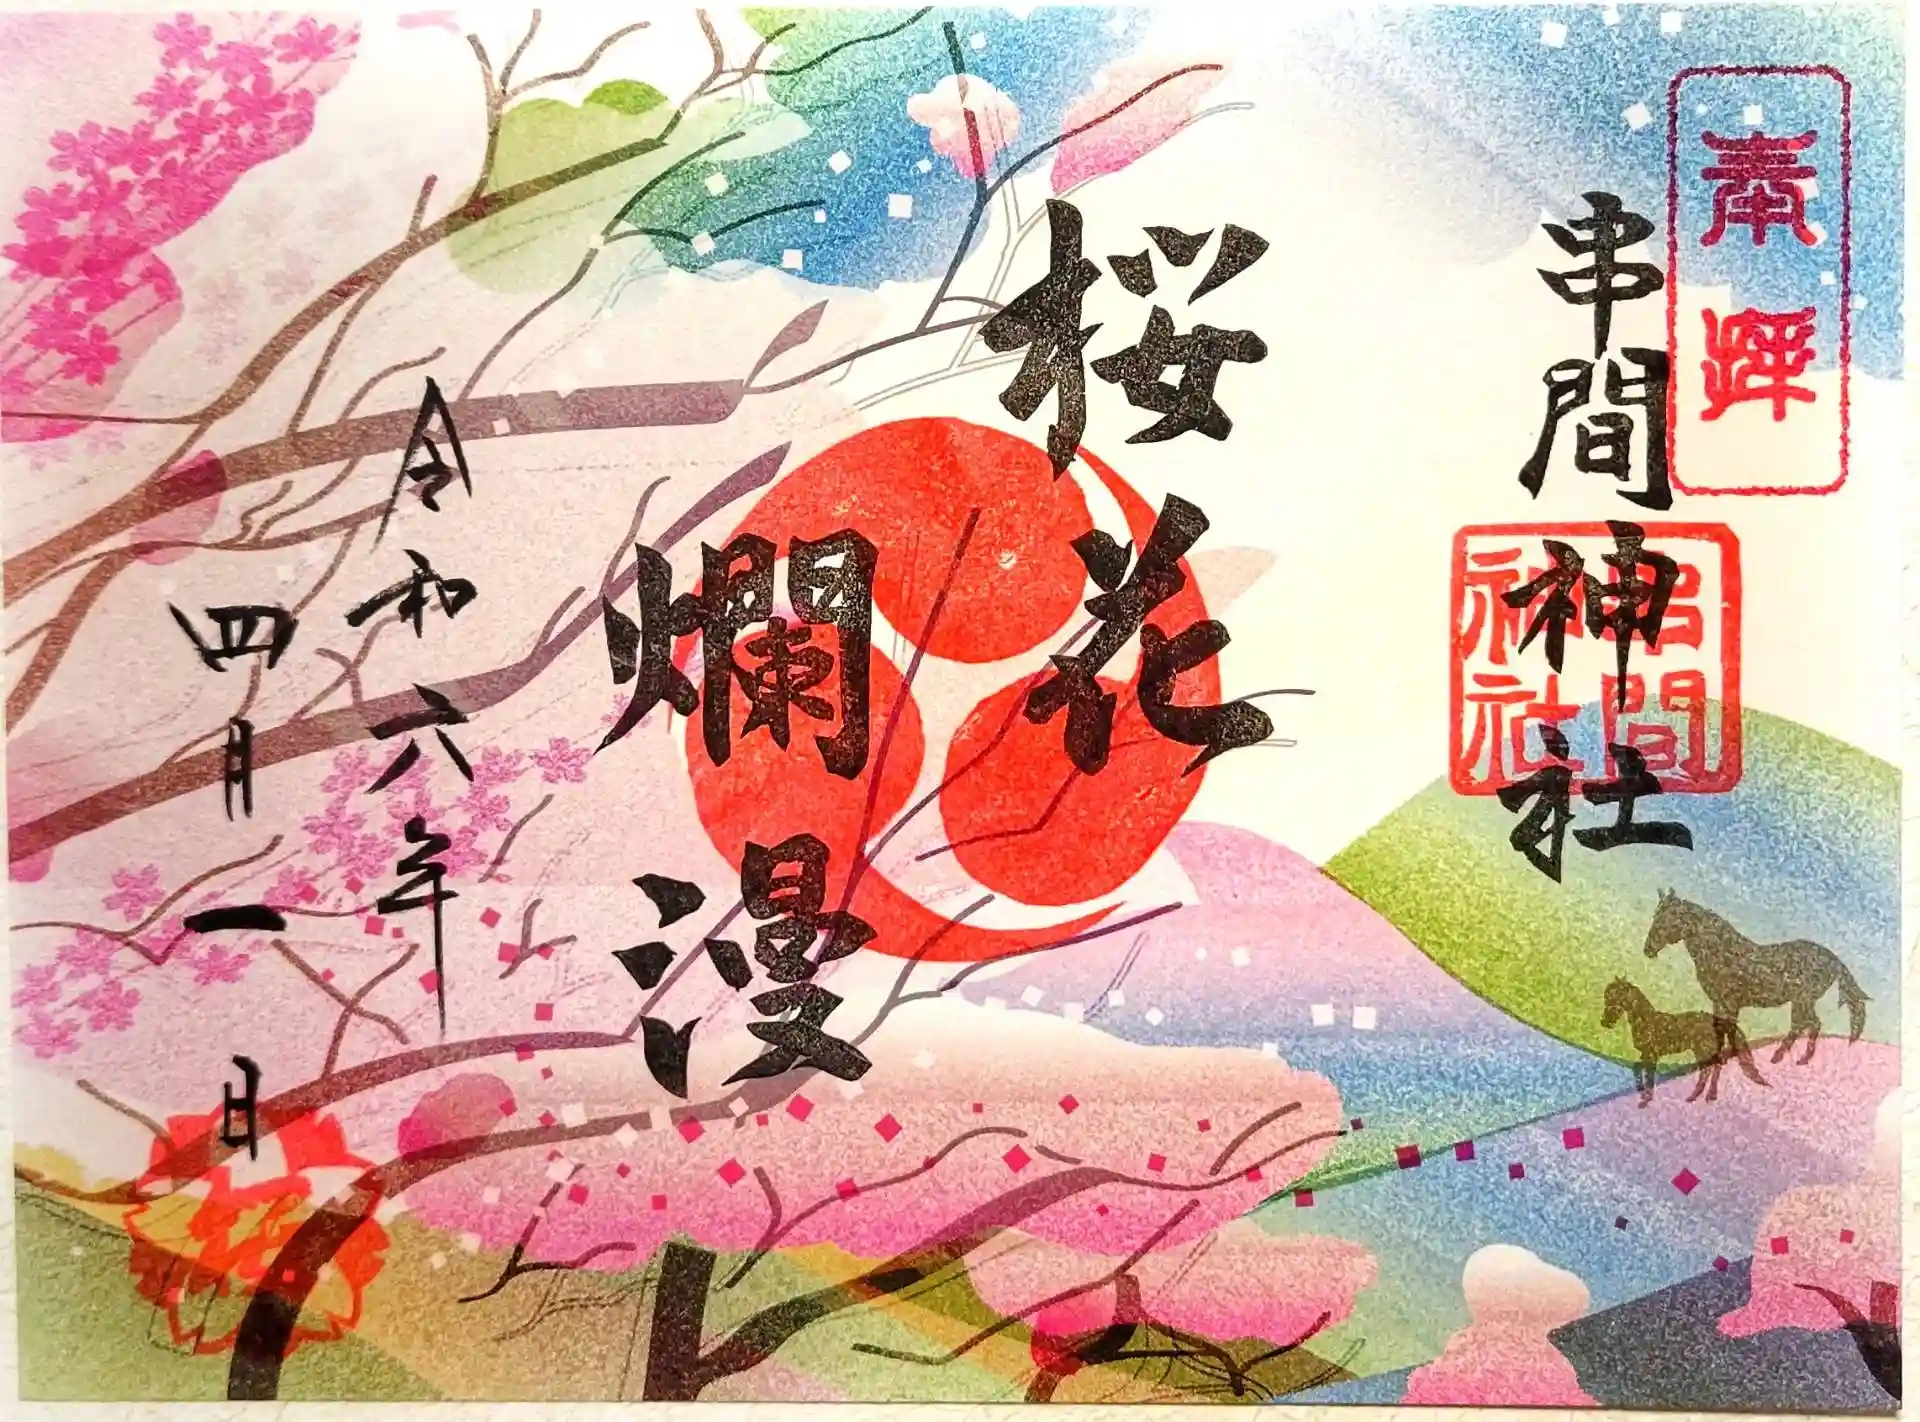 奉拝
串間神社
串間
神社
桜花
爛漫
令和六年
四月一日